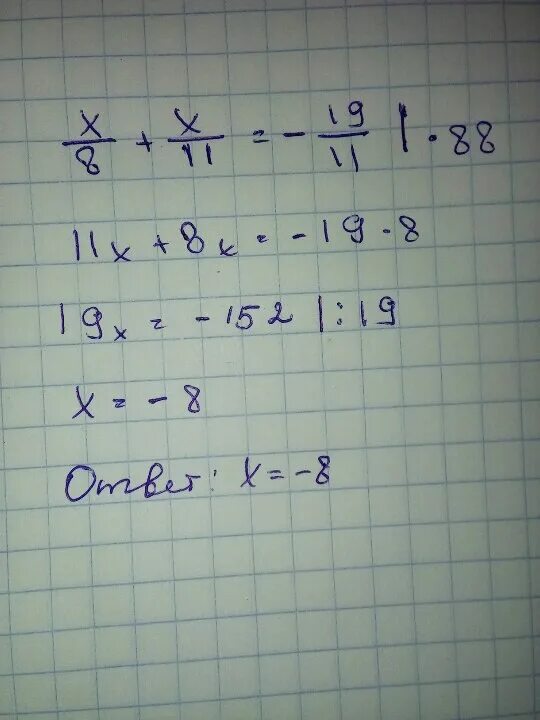 x/8 + x/11 = - 19/11 | · 88
11x + 8x = -19 · 8
19x = -152 | : 19
x = -8
Ответ: x = -8